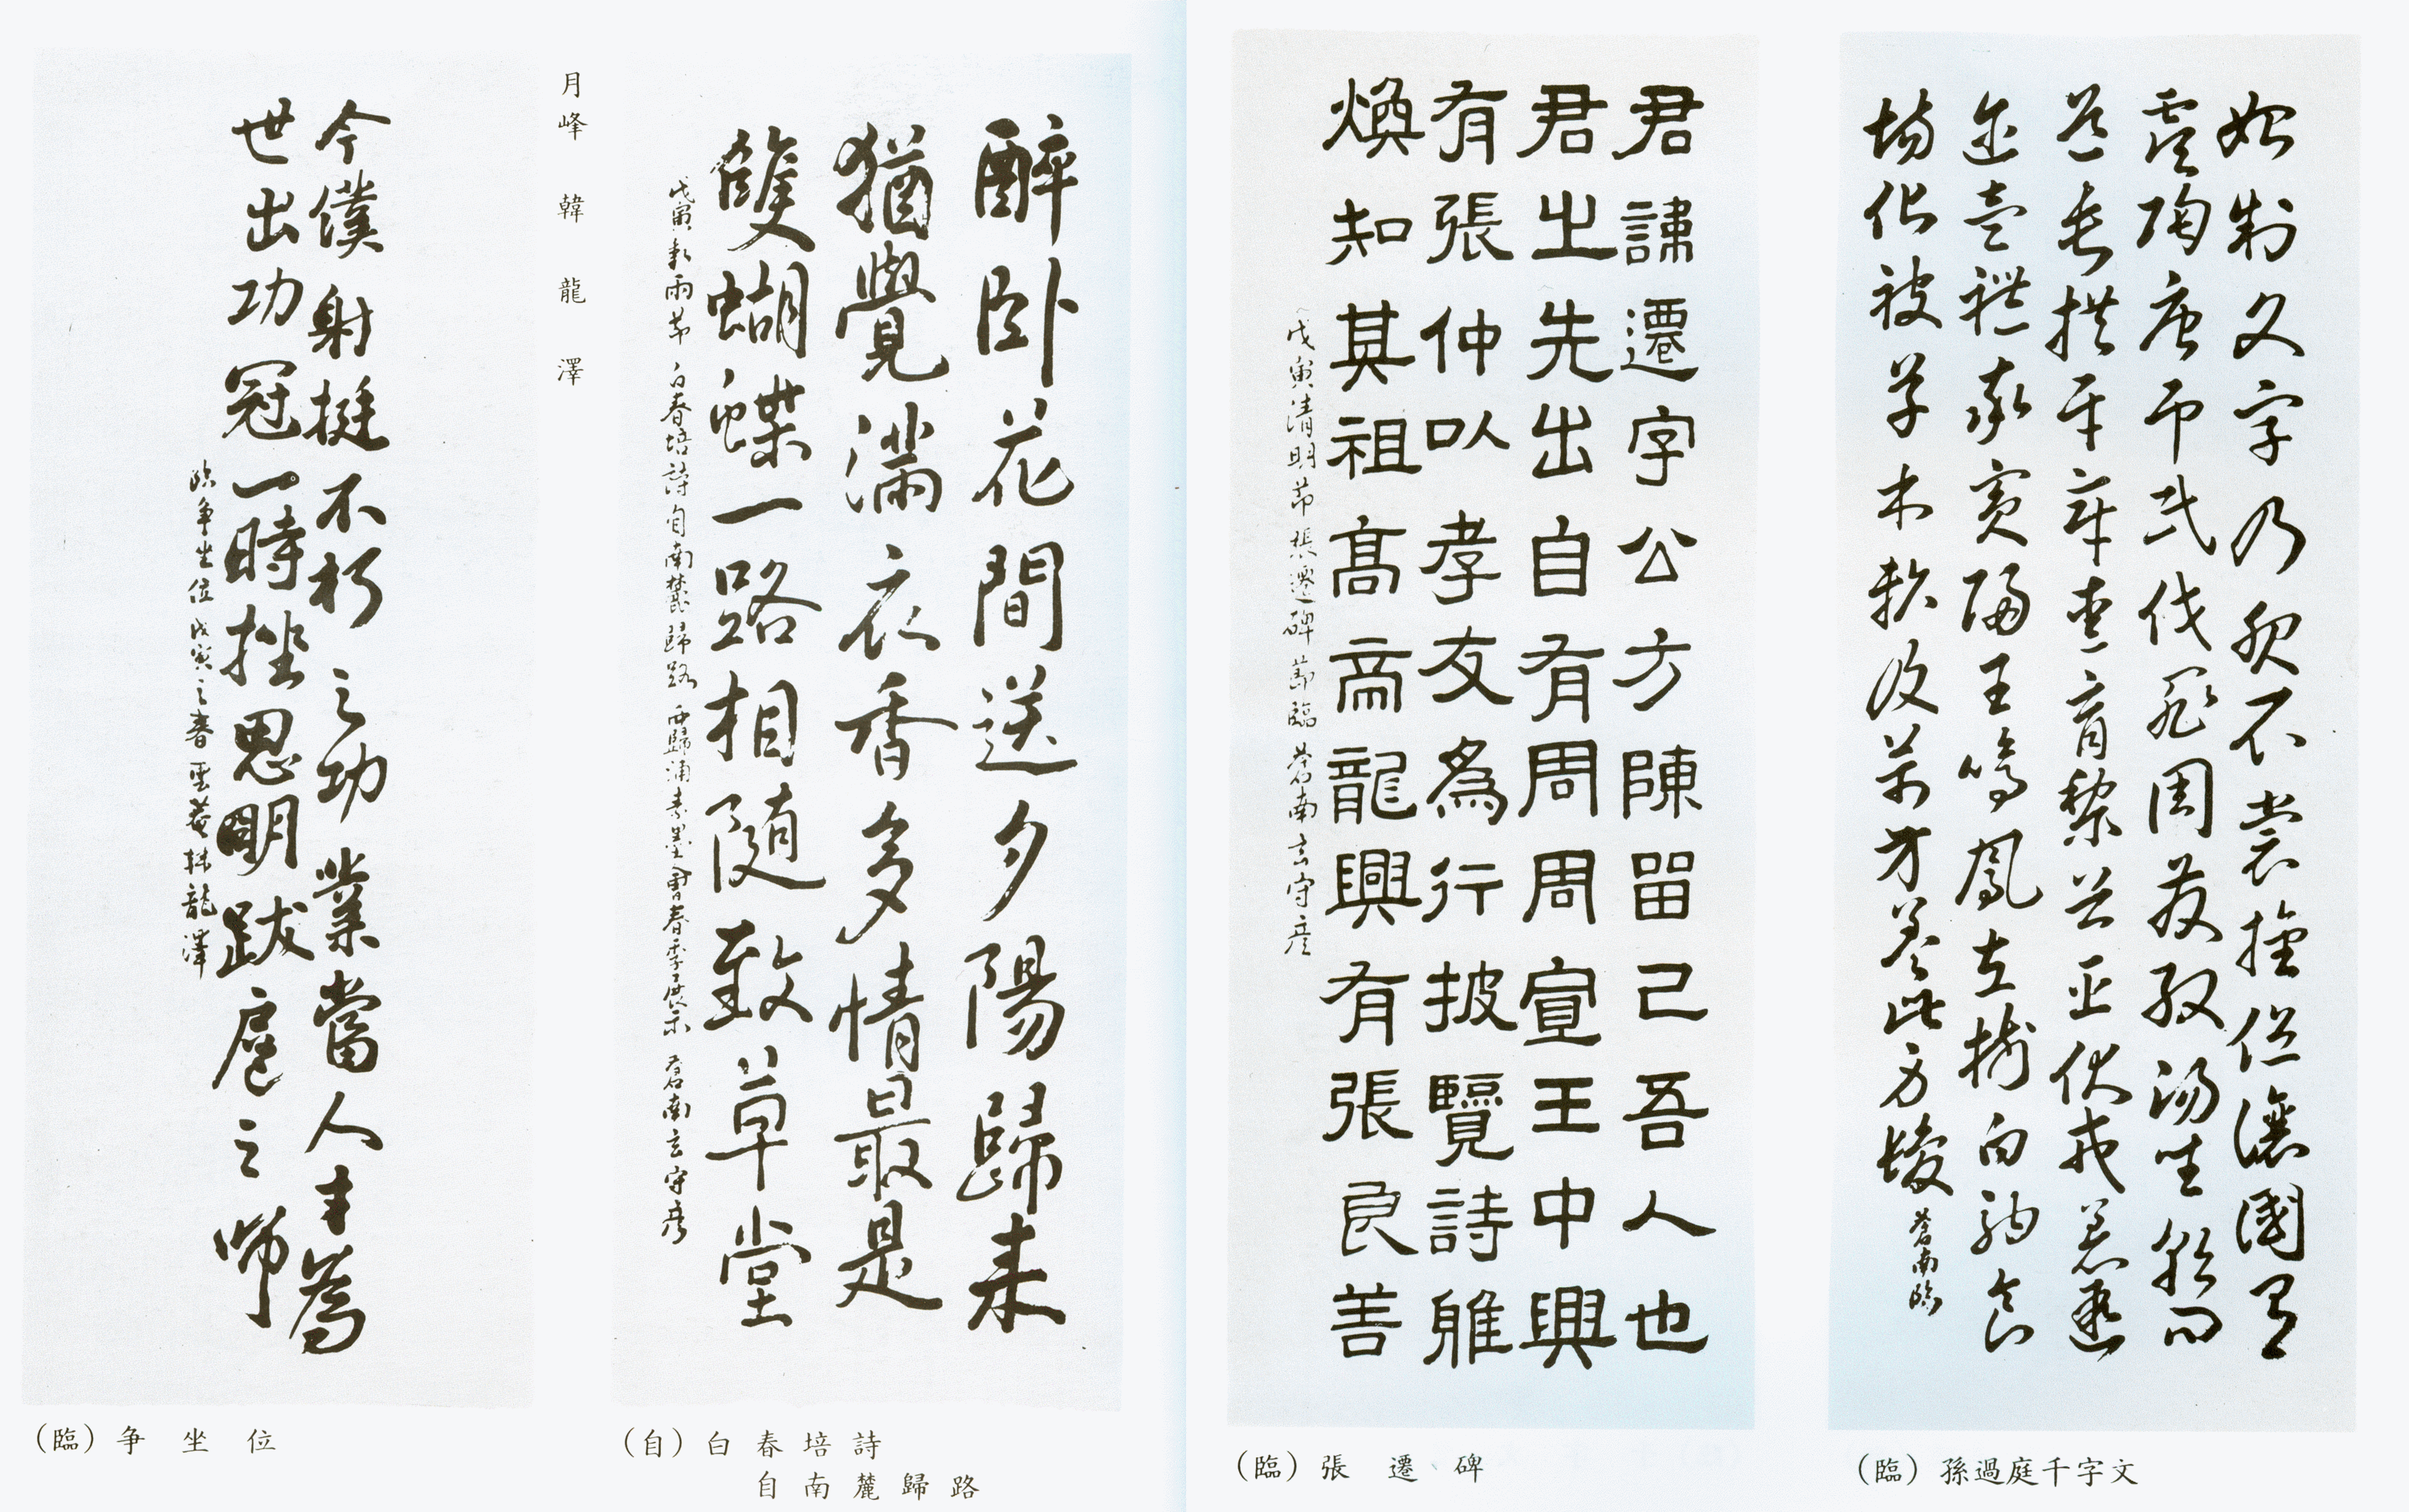 始制文字乃服衣裳推位讓國有
虞陶唐弔民伐罪周發殷湯坐朝問
道垂拱平章愛育黎首臣伏戎羌遐
邇壹體率賓歸王鳴鳳在樹白駒食
場化被草木賴及萬方蓋此身髮
蒼南臨
(臨) 孫過庭千字文
君諱遷字公方陳留己吾人也
君之先出自有周周宣王中興
有張仲以孝友為行披覽詩雅
煥知其祖高帝龍興有張良善
戊寅清明節張遷碑節臨 蒼南玄守彦
(臨) 張遷碑
醉臥花間送夕陽歸来
猶覺滿衣香多情最是
雙蝴蝶一路相随致草堂
戊寅穀雨節 白春培詩自南麓歸路 西歸浦素墨會春季展示 蒼南玄守彦
(自) 白春培詩
自南麓歸路
月峰 韓龍澤
今僕射挺不朽之功業當人主為
世出功冠一時挫思明跋扈之師
臨争坐位戊寅之春 韓龍澤
(臨) 争坐位